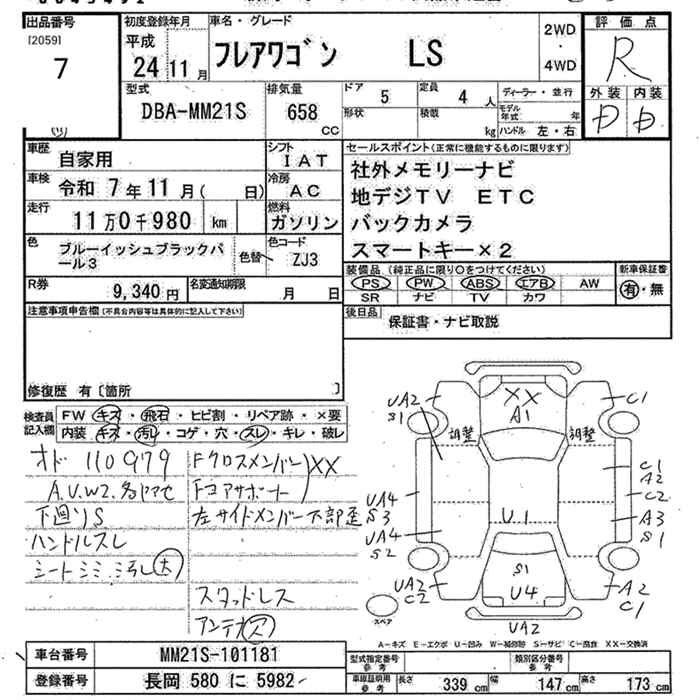 出品番号
[2059]
7
初度登録年月
平成
24 11 月
車名・グレード
フレアワゴン LS
2WD
・
4WD
評価点
R
外装 内装
D D
型式
DBA-MM21S
排気量
658 CC
ドア 5
定員 4 人
形状
積載 kg
ディーラー・並行
モデル年式 年
ハンドル 左・右
車歴
自家用
シフト
IAT
車検
令和 7 年 11 月 ( 日)
冷房
AC
走行
11 万 0 千 980 km
燃料
ガソリン
色
ブルーイッシュブラックパール3
色替
色コード
ZJ3
R券
9,340 円
名変通知期限
月 日
セールスポイント(正常に機能するものに限ります)
社外メモリーナビ
地デジTV ETC
バックカメラ
スマートキー×2
装備品(純正品に限り○をつけてください)
PS PW ABS エアB AW
SR ナビ TV カワ
新車保証書
有・無
後日品
保証書・ナビ取説
注意事項申告欄(不具合内容等は具体的に記入して下さい)
修復歴 有〔箇所 〕
検査員記入欄
FW キズ・飛石・ヒビ割・リペア跡・×要
内装・キズ・汚レ・コゲ・穴・スレ・キレ・破レ
オド 110979
A.U.W2.多ヤマセ
下廻りS
ハンドルスレ
シートシミ 汚レ大
Fクロスメンバー XX
Fコアサポート
左サイドメンバー下部歪
スタッドレス
アンテナス
UA2
S1
XX
A1
C1
調整
調整
C1
A2
C2
UA4
S3
U.1
A3
S1
UA4
S2
S1
U4
UA2
C2
A2
C1
UA2
スペア
A−キズ E−エクボ U−凹み W−補修跡 S−サビ C−腐食 XX−交換済
車台番号
MM21S-101181
登録番号
長岡 580 に 5982
型式指定番号
参考
類別区分番号
参考
車庫証明用
参考
長さ 339 cm 幅 147 cm 高さ 173 cm